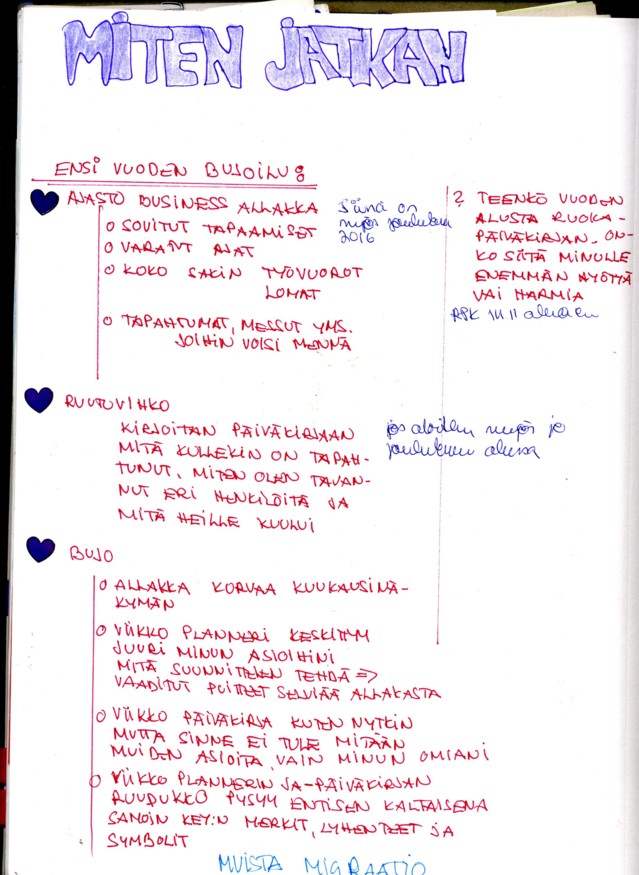 MITEN JATKAN
ENSI VUODEN BUJOILU:
AJASTO BUSINESS ALLAKKA
O SOVITUT TAPAAMISET
O VARATUT AJAT
O KOKO SAKIN TYÖVUOROT
LOMAT
O TAPAHTUMAT, MESSUT YMS.
JOIHIN VOISI MENNÄ
Siinä on
myös joulukuu
2016
? TEENKÖ VUODEN
ALUSTA RUOKA-
PÄIVÄKIRJAN. ON-
KO SIITÄ MINULLE
ENEMMÄN HYÖTYÄ
VAI HARMIA
RPK 14.11 alkaen
RUUTUVIHKO
KIRJOITAN PÄIVÄKIRJAAN
MITÄ KULLEKIN ON TAPAH-
TUNUT, MITEN OLEN TAVAN-
NUT ERI HENKILÖITÄ JA
MITÄ HEILLE KUULUI
jos aloitan myös jo
joulukuun alussa
BUJO
O ALLAKKA KORVAA KUUKAUSINÄ-
KYMÄN
O VIIKKO PLANNERI KESKITTYY
JUURI MINUN ASIOIHINI
MITÄ SUUNNITELEN TEHDÄ =>
VAADITUT PUITTEET SELVIÄÄ ALLAKASTA
O VIIKKO PÄIVÄKIRJA KUTEN NYTKIN
MUTTA SINNE EI TULE MITÄÄN
MUIDEN ASIOITA, VAIN MINUN OMIANI
O VIIKKO PLANNERIN JA -PÄIVÄKIRJAN
RUUDUKKO PYSYY ENTISEN KALTAISENA
SAMOIN KEY:N MERKIT, LYHENTEET JA
SYMBOLIT
MUISTA MIGRAATIO